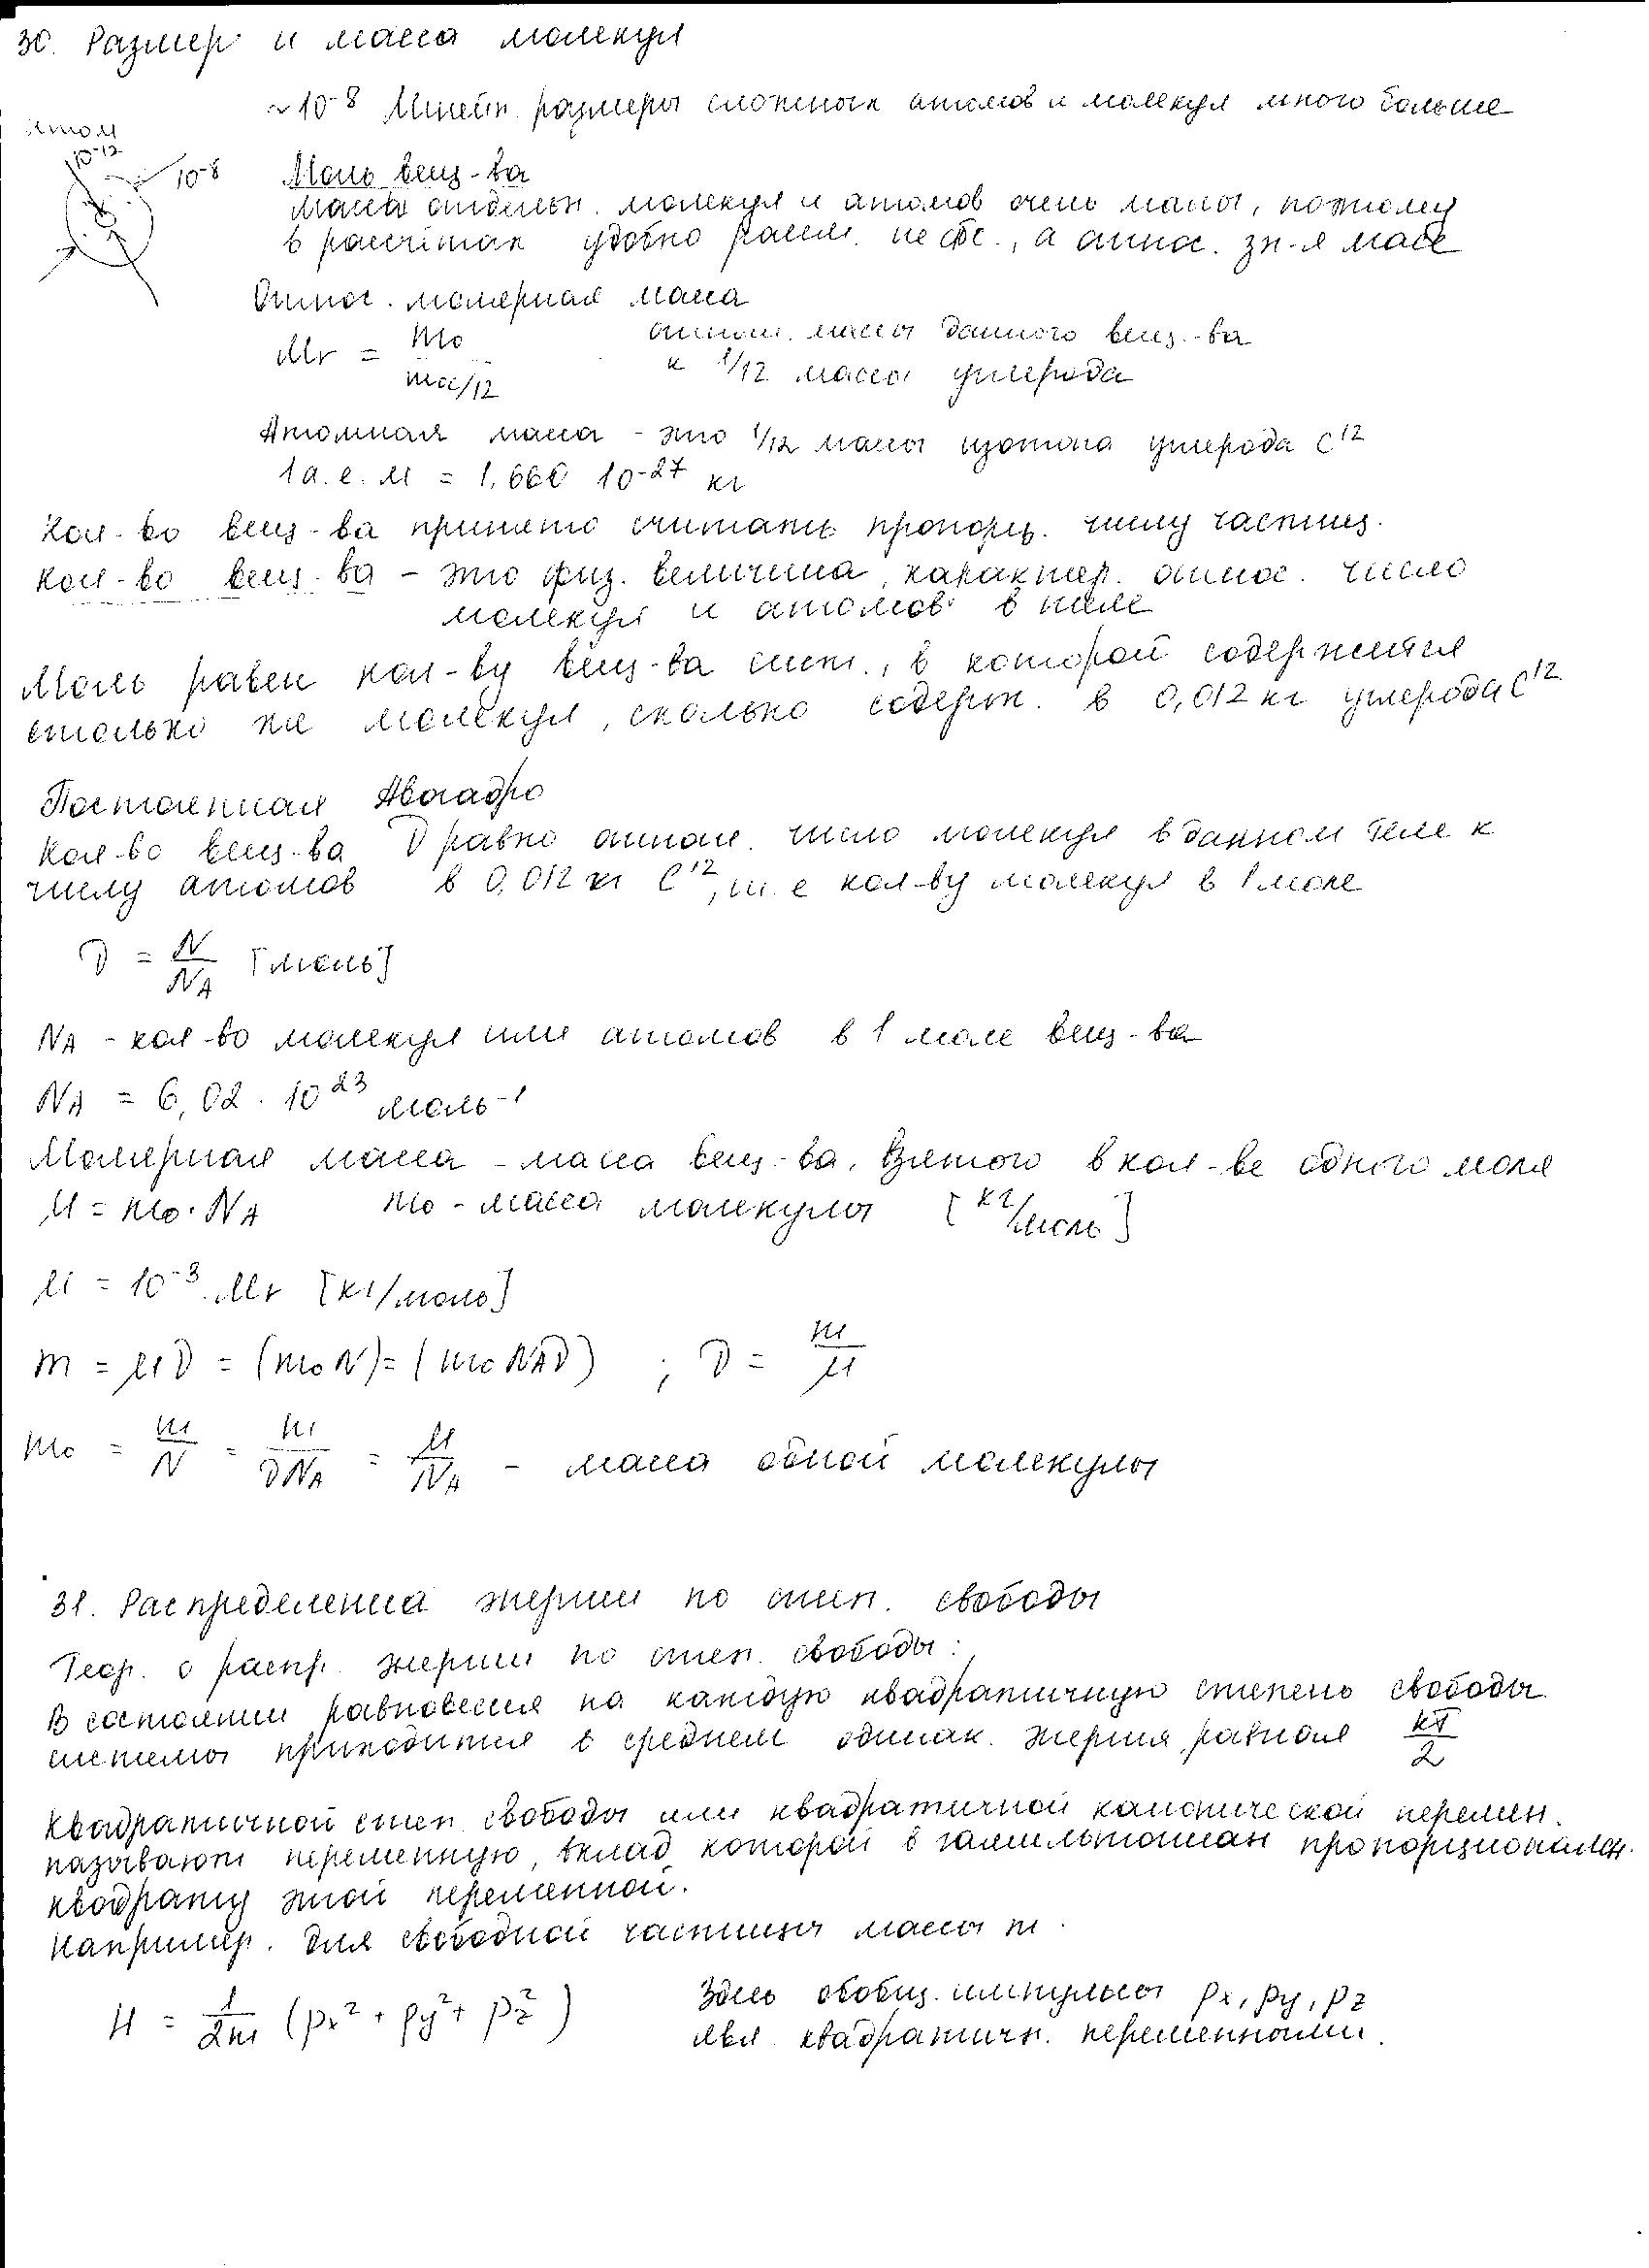 30. Размер и масса молекул
~10⁻⁸ Линейн. размеры сложных атомов и молекул много больше
Атом
10⁻¹²
10⁻⁸
Моль вещ-ва
Массы отдельн. молекул и атомов очень малы, поэтому
в расчётах удобно рассм. не абс., а относ. зн-я масс
Относ. молярная масса
Mr = m₀ / (mос/12) отнош. массы данного вещ-ва
к 1/12 массы углерода
Атомная масса - это 1/12 массы изотопа углерода C¹²
1 а.е.м = 1,660 10⁻²⁷ кг
Кол-во вещ-ва принято считать пропорц. числу частиц.
Кол-во вещ-ва – это физ. величина, характер. относ. число
молекул и атомов в теле
Моль равен кол-ву вещ-ва сист., в которой содержится
столько же молекул, сколько содерж. в 0,012 кг углерода C¹²
Постоянная Авогадро
Кол-во вещ-ва ν равно отнош. число молекул в данном теле к
числу атомов в 0,012 кг C¹², т.е кол-ву молекул в 1 моле
ν = N/N_A [моль]
N_A - кол-во молекул или атомов в 1 моле вещ-ва
N_A = 6,02 · 10²³ моль⁻¹
Молярная масса - масса вещ-ва, взятого в кол-ве одного моля
μ = m₀ · N_A m₀ - масса молекулы [кг/моль]
μ = 10⁻³ · Mr [кг/моль]
m = μν = (m₀N) = (m₀N_Aν) ; ν = m/μ
m₀ = m/N = m/(νN_A) = μ/N_A - масса одной молекулы
31. Распределения энергии по степ. свободы
Теор. о распр. энергии по степ. свободы:
В состоянии равновесия на каждую квадратичную степень свободы
системы приходится в среднем одинак. энергия, равная kT/2
Квадратичной степ. свободы или квадратичной канонической перемен.
называют переменную, вклад которой в гамильтониан пропорционален.
квадрату этой переменной.
Например. Для свободной частицы массы m.
H = 1/2m (px² + py² + pz²) Здесь обобщ. импульсы px, py, pz
явл. квадратичн. переменными.